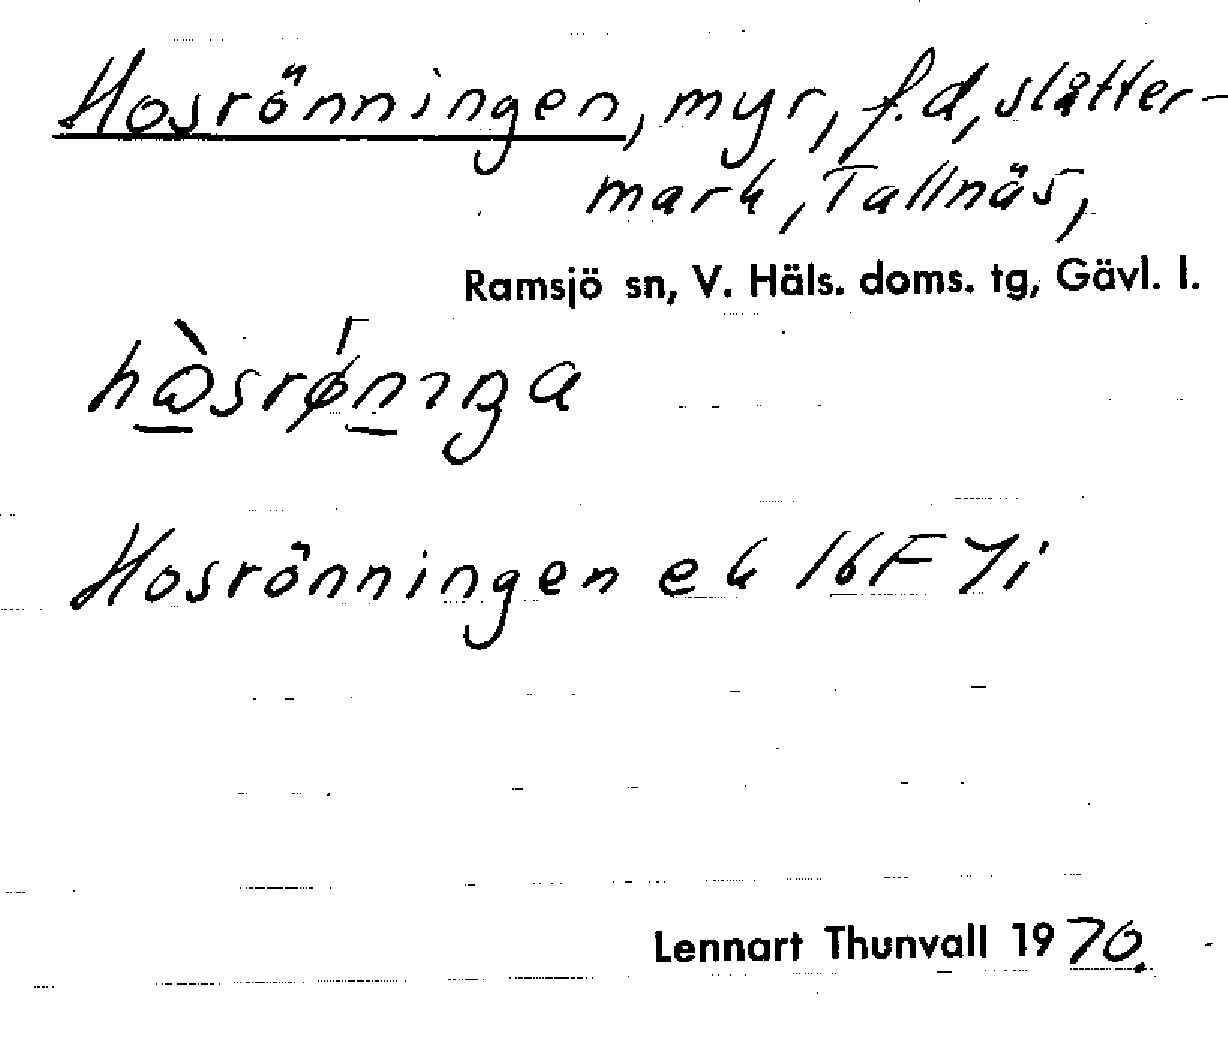 Hosrönningen, myr, f.d, slåtter-
mark, Tallnäs,
Ramsjö sn, V. Häls. doms. tg, Gävl. l.
Hosrönningen ek 16F 7i
Lennart Thunvall 1970.